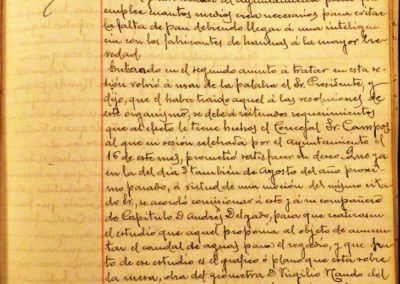 emplee cuantos medios crea necesarios para evitar
la falta de pan debiendo llegar á una inteligen
cia con los fabricantes de harinas á la mayor bre
vedad.
Entrando en el segundo asunto á tratar en esta se
sión volvió á usar de la palabra el Sr. Presidente, y
dijo, que el haber traido aquel á las resoluciones de
este organismo, se debe á reiterados requerimientos
que al efecto le tiene hechos el Concejal Sr. Campos,
al que en sesión celebrada por el ayuntamiento el
16 de este mes, prometió satisfacer su deseo. Que ya
en la del dia 3 también de Agosto del año próxi
mo pasado, á virtud de una moción del mismo cita
do Sr., se acordó comisionar á este y á su compañero
de Capítulo D. Andrés Delgado, para que realizasen
el estudio que aquel proponia al objeto de aumen
tar el caudal de aguas para el regadio, y que fru
to de ese estudio es el gráfico ó plano que está sobre
la mesa, obra del geómetra D. Virgilio del